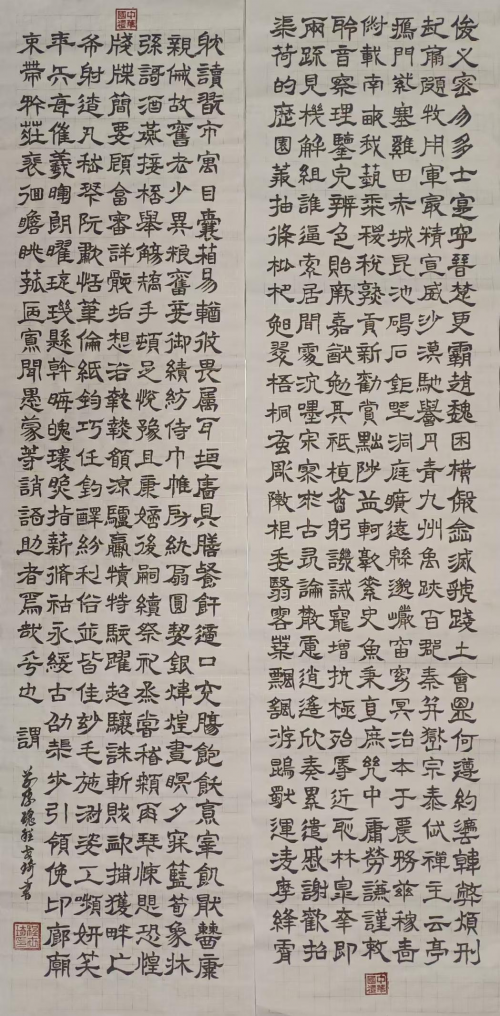 俊乂密勿多士寔寧晉楚更霸趙魏困橫假途滅虢踐土會盟何遵約法韓弊煩刑
起翦頗牧用軍最精宣威沙漠馳譽丹青九州禹跡百郡秦并嶽宗泰岱禪主云亭
雁門紫塞雞田赤城昆池碣石鉅野洞庭曠遠綿邈巖岫杳冥治本于農務茲稼穡
俶載南畝我藝黍稷稅熟貢新勸賞黜陟孟軻敦素史魚秉直庶幾中庸勞謙謹敕
聆音察理鑒貌辨色貽厥嘉猷勉其祗植省躬譏誡寵增抗極殆辱近恥林皋幸即
兩疏見機解組誰逼索居閒處沉默寂寥求古尋論散慮逍遙欣奏累遣慼謝歡招
渠荷的歷園莽抽條枇杷晚翠梧桐蚤彫陳根委翳落葉飄颻游鵾獨運凌摩絳霄
耽讀翫市寓目囊箱易輶攸畏屬耳垣牆具膳餐飯適口充腸飽飫烹宰飢厭糟糠
親戚故舊老少異粮舊妾御績紡侍巾帷房紈扇圓潔銀煒煌晝瞑夕寐籃筍象床
絃歌酒讌接杯舉觴矯手頓足悅豫且康嫡後嗣續祭祀蒸嘗稽顙再拜悚懼恐惶
牋牒簡要顧答審詳骸垢想浴執熱願涼驢騾犢特駭躍超驤誅斬賊盜捕獲叛亡
布射遼丸嵇琴阮嘯恬筆倫紙鈞巧任釣釋紛利俗並皆佳妙毛施淑姿工嚬妍笑
年矢每催羲暉朗曜璇璣懸斡晦魄環照指薪脩祜永綏吉劭矩步引領俛仰廊廟
束帶矜莊裵徊瞻眺孤陋寡聞愚蒙等誚語助者焉哉乎也 謂